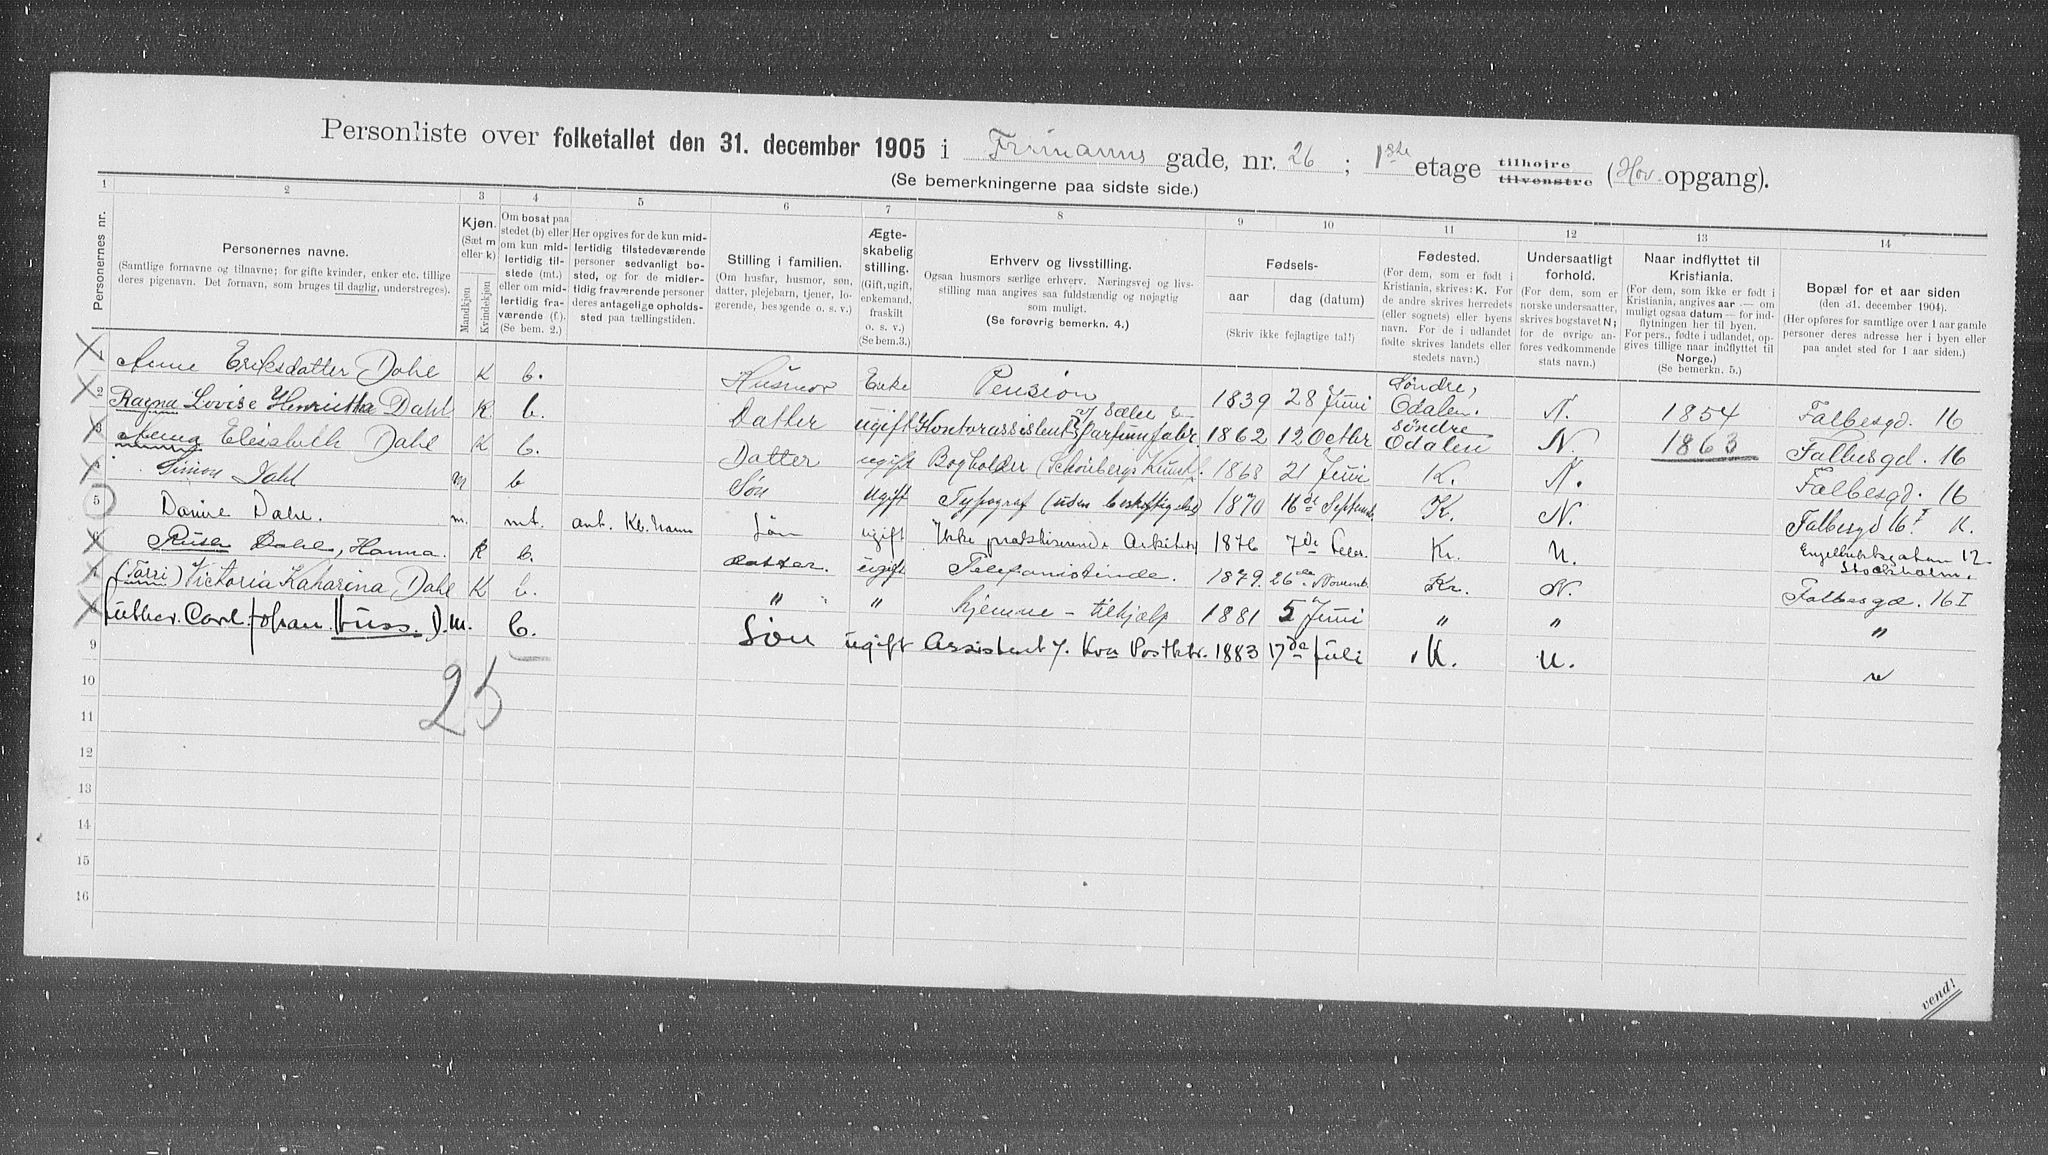 Personliste over folketallet den 31. december 1905 i Frimanns gade, nr. 26 ; 1ste etage tilhøire tilvenstre (Hov. opgang).
(Se bemerkningerne paa sidste side.)
1 2 3 4 5 6 7 8 9 10 11 12 13 14
Personernes nr.
Personernes navne.
(Samtlige fornavne og tilnavne; for gifte kvinder, enker etc. tillige
deres pigenavn. Det fornavn, som bruges til daglig, understreges).
Kjøn.
(Sæt m
eller k)
Mandkjøn
Kvindekjøn
Om bosat paa
stedet (b) eller
om kun mid-
lertidig til-
stede (mt.)
eller om mid-
lertidig fra-
værende (f.).
(Se bem. 2.)
Her opgives for de kun mid-
lertidig tilstedeværende
personer sedvanligt bo-
sted, og for de midler-
tidig fraværende personer
deres antagelige opholds-
sted paa tællingstiden.
Stilling i familien.
(Om husfar, husmor, søn,
datter, plejebarn, tjener, lo-
gerende, besøgende o. s. v.)
Ægte-
skabelig
stilling.
(Gift, ugift,
enkemand,
fraskilt
o. s. v.)
(Se bem.3.)
Erhverv og livsstilling.
Ogsaa husmors særlige erhverv. Næringsvej og livs-
stilling maa angives saa fuldstændig og nøjagtig
som muligt.
(Se forøvrig bemerkn. 4.)
Fødsels-
aar
dag (datum)
(Skriv ikke fejlagtige tal!)
Fødested.
(For dem, som er født i
Kristiania, skrives: K. For
de andre skrives herredets
(eller sognets) eller byens
navn. For de i udlandet
fødte skrives landets eller
stedets navn.)
Undersaatligt
forhold.
(For dem, som er
norske undersaatter,
skrives bogstavet N;
for de øvrige an-
føres vedkommende
stats navn.)
Naar indflyttet til
Kristiania.
(For dem, som ikke er født i
Kristiania, angives aar — om
muligt ogsaa datum — for ind-
flytningen her til byen.
For pers., fødte i udlandet, op-
gives tillige naar indflyttet til
Norge.)
(Se bemerkn. 5.)
Bopæl for et aar siden
(den 31. december 1904).
(Her opføres for samtlige over 1 aar gamle
personer deres adresse her i byen eller
paa andet sted for 1 aar siden.)
1 Anne Eriksdatter Dahl K b. Husmor Enke Pension 1839 28 Juni Søndre, Odalen. N. 1854 Falbesgd. 16
2 Ragna Lovise Henriette Dahl K b. Datter ugift Kontorassistent Parfumfabr 1862 12 Octbr søndre Odalen N 1863 Falbesgd. 16
3 Anna Elisabeth Dahl K b. Datter ugift Bogholder (Schønbergs Kunsth. 1868 21 Juni K. N. Falbesgd. 16
4 Simon Dahl m b Søn ugift Typograf (uden beskjæftigelse) 1870 16de Septemb. K. N. Falbesgd 16 I K.
5 Dahl. m. mt. ant. Kb.havn Søn ugift Ikke praktiserende Arkitekt 1876 7de Febr. Kr. N. Engelbrektsgatan 12 Stockholm.
6 Dahl, Hanna. k b. datter. ugift Telefonistinde. 1879. 26de Novemb. Kr. N. Falbesgd. 16 I
7 Victoria Katharina Dahl K b. " " hjemme-tilhjælp 1881 5 Juni " " "
8 Luther. Carl. Johan. Huss. D. m. b. Søn ugift Assistent Postktr. 1883 17de Juli K. N. "
9
25
10
11
12
13
14
15
16
vend!